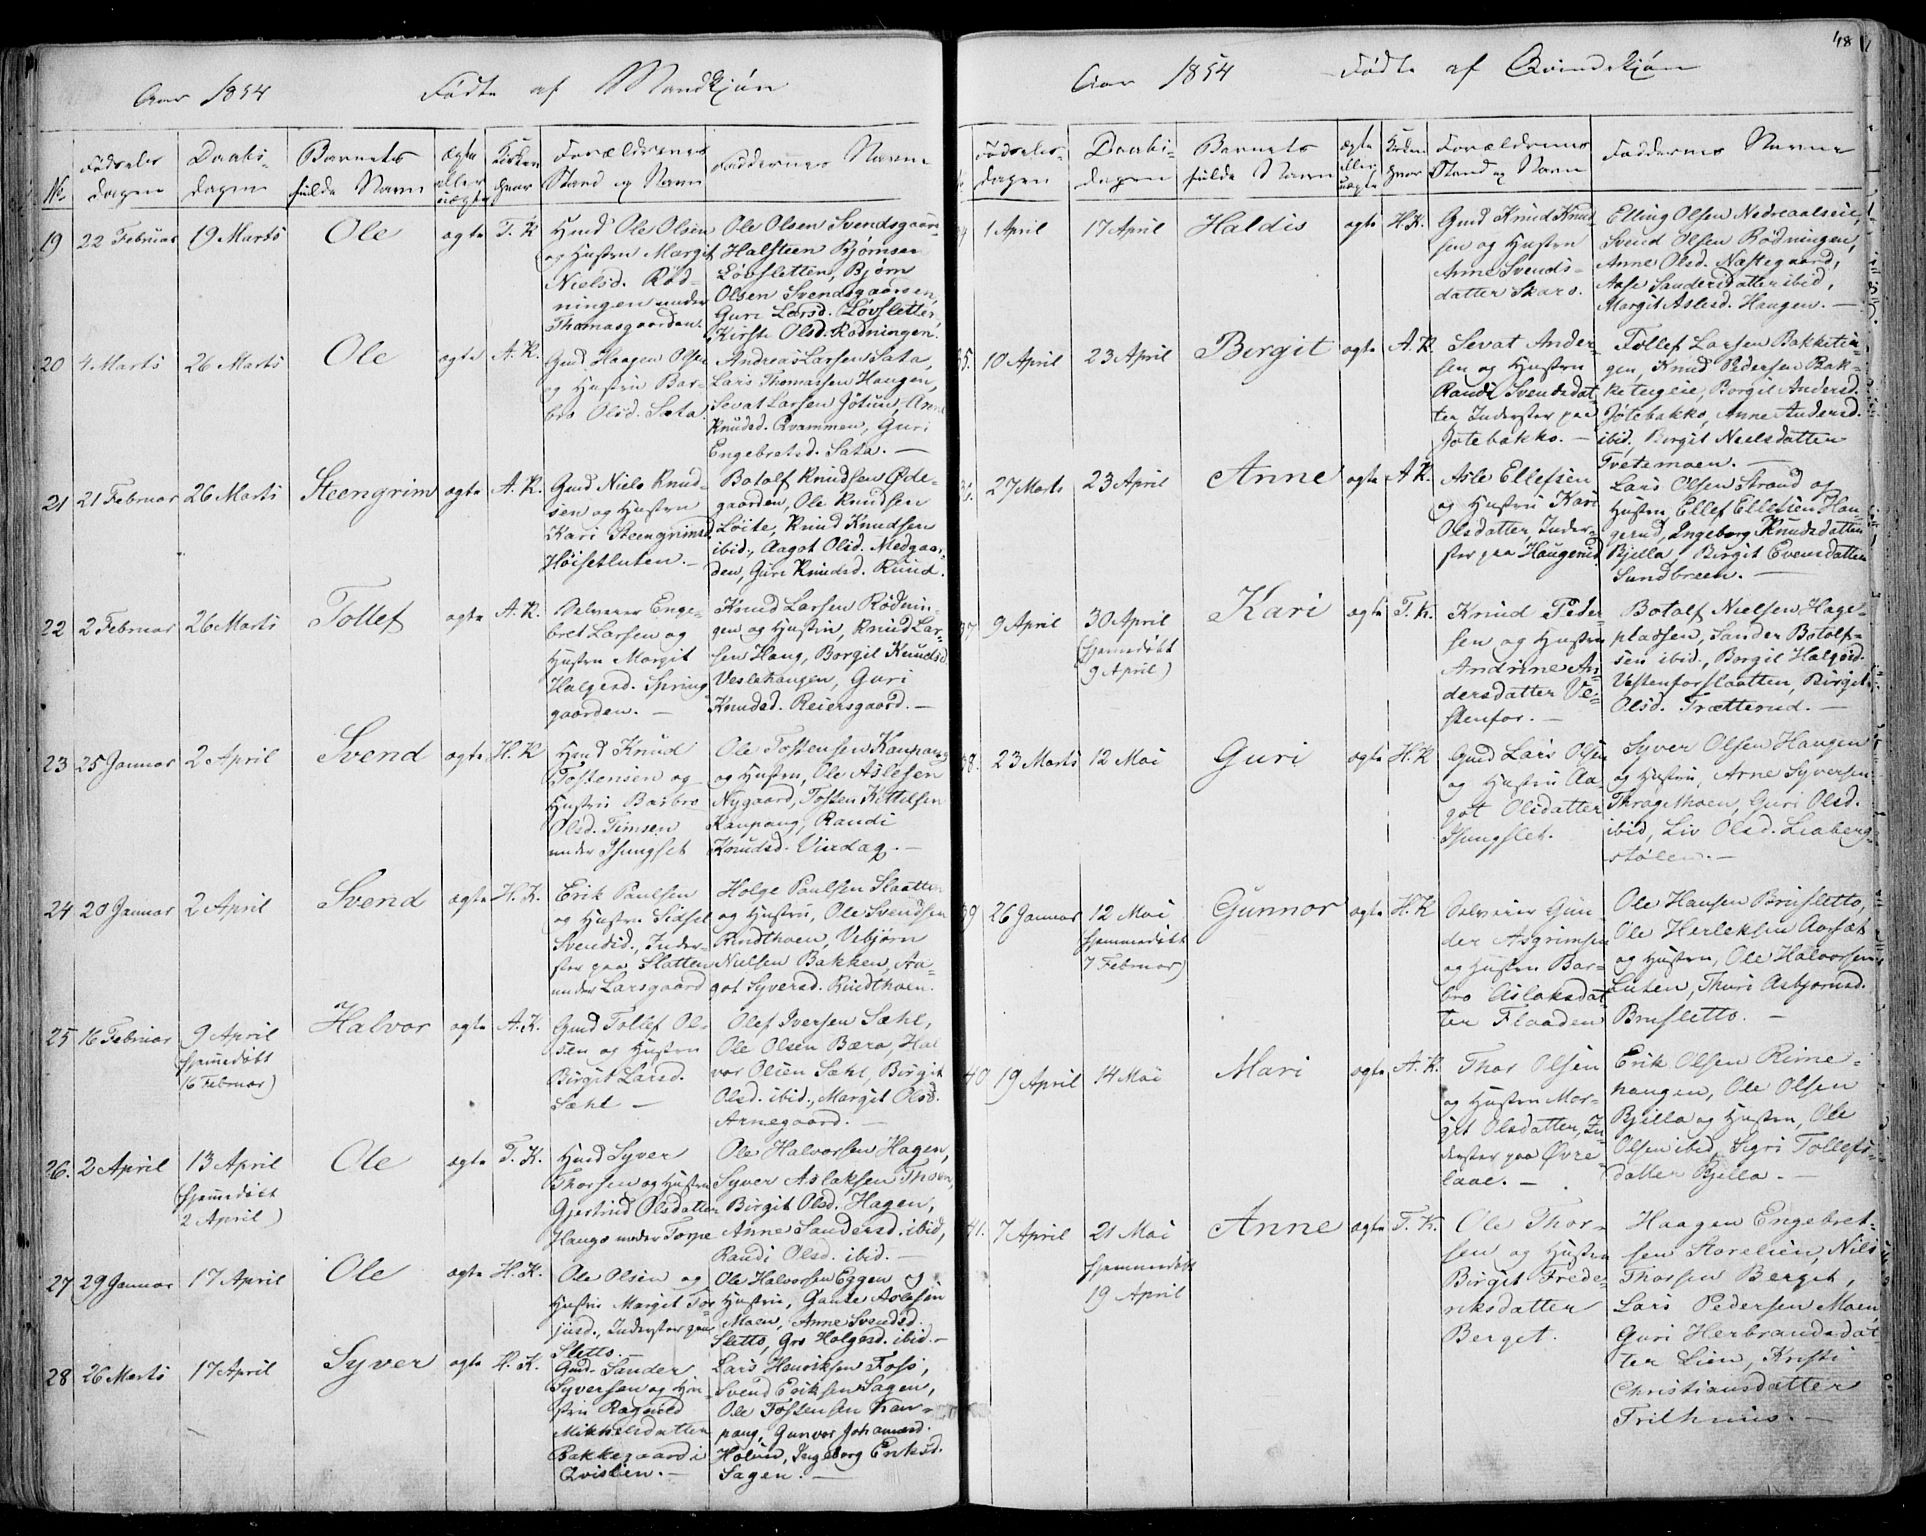 48
Aar 1854 Fødte af Mandkjøn
No.
Fødselsdagen
Daabsdagen
Barnets fulde Navn
ægte eller uægte
Forældrenes Stand og Navn
Faddernes Navne
19 22 Februar 19 Marts Ole ægte T. K.
Hmd Ole Olsen
og Hustru Margit
Nielsd. Rødningen under
Thomasgaarden.
Ole Olsen Svendsgaar-
Halsteen Bjørnsen
Løvsletten, Bjørn
Olsen Svendsgaarden,
Guri Larsd. Løvsletten,
Kirsti Olsd. Rødningen.
20 4 Marts 26 Marts Ole ægte A. K.
Gmd Haagen Olsen
og Hustru Bar-
bro Olsd. Sata.
Andreas Larsen Sata,
Lars Thomassen Haugen,
Sevat Larsen Jøtun, Anne
Knudsd. Qvammen, Guri
Engebretsd. Sata. —
21 21 Februar 26 Marts Steengrim ægte A. K.
Gmd Niels Knud-
sen og Hustru
Kari Steengrimsd.
Høisetluten. —
Botolf Knudsen Øde-
gaarden, Ole Knudsen
Løite, Knud Knudsen
ibid., Aagot Olsd. Medgaar-
den, Guri Knudsd. Ruud.
22 2 Februar 26 Marts Tollef ægte A. K.
Selveier Enge-
bret Larsen og
Hustru Margit
Halgersd. Spring-
gaarden. —
Knud Larsen Rødnin-
gen og Hustru, Knud Lar-
sen Haug, Borgil Knudsd.
Veslehaugen, Guri
Knudsd. Reiersgaard. —
23 25 Januar 2 April Svend ægte H. K
Hmd Knud
Tostensen og
Hustru Barbro
Olsd. Timsen
under Ihungset
Ole Tostensen Kaupang
og Hustru, Ole Aslesen
Nygaard, Tosten Kittilsen
Kaupang, Randi
Knudsd. Virdag. —
24 20 Januar 2 April Svend ægte H. K.
Erik Paulsen
og Hustru Sidsel
Svendsd., Inder-
ster paa Slatten
under Larsgaard
Holge Paulsen Slaatten
og Hustru, Ole Svendsen
Rudthoen, Vebjørn
Nielsen Bakken, Aa-
got Syversd. Rudthoen.
25 16 Februar 9 April Halvor ægte A. K.
(hjemmedøbt
16 Februar)
Gmd Tollef Ol-
sen og Hustru
Birgit Larsd.
Sæhl —
Olef Iversen Sæhl,
Ole Olsen Bæra, Hal
vor Olsen Sæhl, Birgit
Olsd. ibid., Margit Olsd.
Arnegaard. —
26. 2 April 13 April Ole ægte T. K.
(hjemmedøbt
2 April)
Hmd Syver
Thorsen og Hustru
Gjertrud Olsdatter
Hauge under Torpe
Ole Halvorsen Hagen,
Syver Aslaksen Thoen,
Birgit Olsd. Hagen,
Anne Sandersd. ibid,
Randi Olsd. ibid. —
27 29 Januar 17 April Ole ægte H. K.
Ole Olsen og
Hustru Margit Tor-
jusd., Inderster paa
Sletto.
Ole Halvorsen Eggen og
Hustru, Gaute Aslesen
Moen, Anne Svendsd.
Sletto, Gro Holgersd. ibid. —
28 26 Marts 17 April Syver ægte H. K.
Gmd. Sander
Syversen og Hu-
stru Ragnild
Mikkelsdatter
Bakkegaard i
Qvislien. —
Lars Henriksen Foss,
Svend Eriksen Sagen,
Ole Tostensen Kau-
pang, Gunvor Johannesd.
Holum, Ingeborg Eriksd.
Sagen. —
Aar 1854 Fødte af Qvindekjøn
Fødselsdagen
Daabsdagen
Barnets fulde Navn
ægte eller uægte
Forældrenes Stand og Navn
Faddernes Navne
1 April 17 April Haldis ægte H. K.
Gmd Knud Knud-
sen og Hustru
Anne Svends-
datter Skars.
Elling Olsen Nedreaalseie,
Svend Olsen Rødningen,
Anne Olsd. Næstegaard,
Aase Sandersdatter ibid,
Margit Aslesd. Haugen. —
35. 10 April 23 April Bergit ægte A. K
Sevat Ander-
sen og Hustru
Randi Svendsdat-
ter Inderster paa
Jotebakko. —
Tollef Larsen Bakketei-
gen, Knud Pedersen Bak-
keteigeie, Borgil Andersd.
Jotebakko, Anne Andersd.
ibid. Borgit Nielsdatter
Tvetemoen. —
36. 27 Marts 23 April Anne ægte A. K.
Asle Ellefsen
og Hustru Kari
Olsdatter, Inder-
ster paa Haugerud
Lars Olsen Strand og
Hustru, Ellef Ellefsen Hau-
gerud, Ingeborg Knudsdatter
Bjella Birgit Evensdatter
Sundbreen. —
37 9 April 30 April Kari ægte T. K.
(hjemmedøbt
9 April)
Knud Peder-
sen og Hustru
Andrine An-
dersdatter Ve-
stenfor. —
Botolf Nielsen Hage-
pladsen, Sander Botolf-
sen ibid., Borgil Halgrsd.
Vestenforslaatten, Birgit
Olsd. Trætterud. —
38. 23 Marts 12 Mai Guri ægte H. K
Gmd Lars Olsen
og Hustru Aa-
got Olsdatter
Ihungslet.
Syver Olsen Haugen
og Hustru, Arne Syversen
Thragethoen, Guri Olsd.
ibid, Liv Olsd. Liaberg-
stølen. —
39 26 Januar 12 Mai Gunnor ægte H. K
(hjemmedøbt
7 Februar)
Selveier Gun-
der Asgrimsen
og Hustru Bar-
bro Aslaksdat-
ter Flaaden
Ole Hansen Brusletto,
Ole Herleksen Aarsæt
og Hustru, Ole Halvorsen
Luten, Thuri Asbjørnsd.
Brusletto. —
40 19 April 14 Mai Mari ægte A. K.
Thor Olsen
og Hustru Mar-
git Olsdatter, In-
derster paa Øvre
laae. —
Erik Olsen Rime-
haugen, Ole Olsen
Bjella og Hustru, Ole
Olsen ibid, Sigri Tollefs-
datter Bjella. —
41. 7 April 21 Mai Anne ægte T. K.
hjemmedøbt
19 April
Ole Thor-
sen og Hustru
Birgit Frede-
riksdatter
Berget.
Haagen Engebret-
sen Storelien, Nils
Thorsen Berget,
Lars Pedersen Moen
Guri Herbrandsdat
ter Lien, Kristi
Christiansdatter
Trilhuus. —